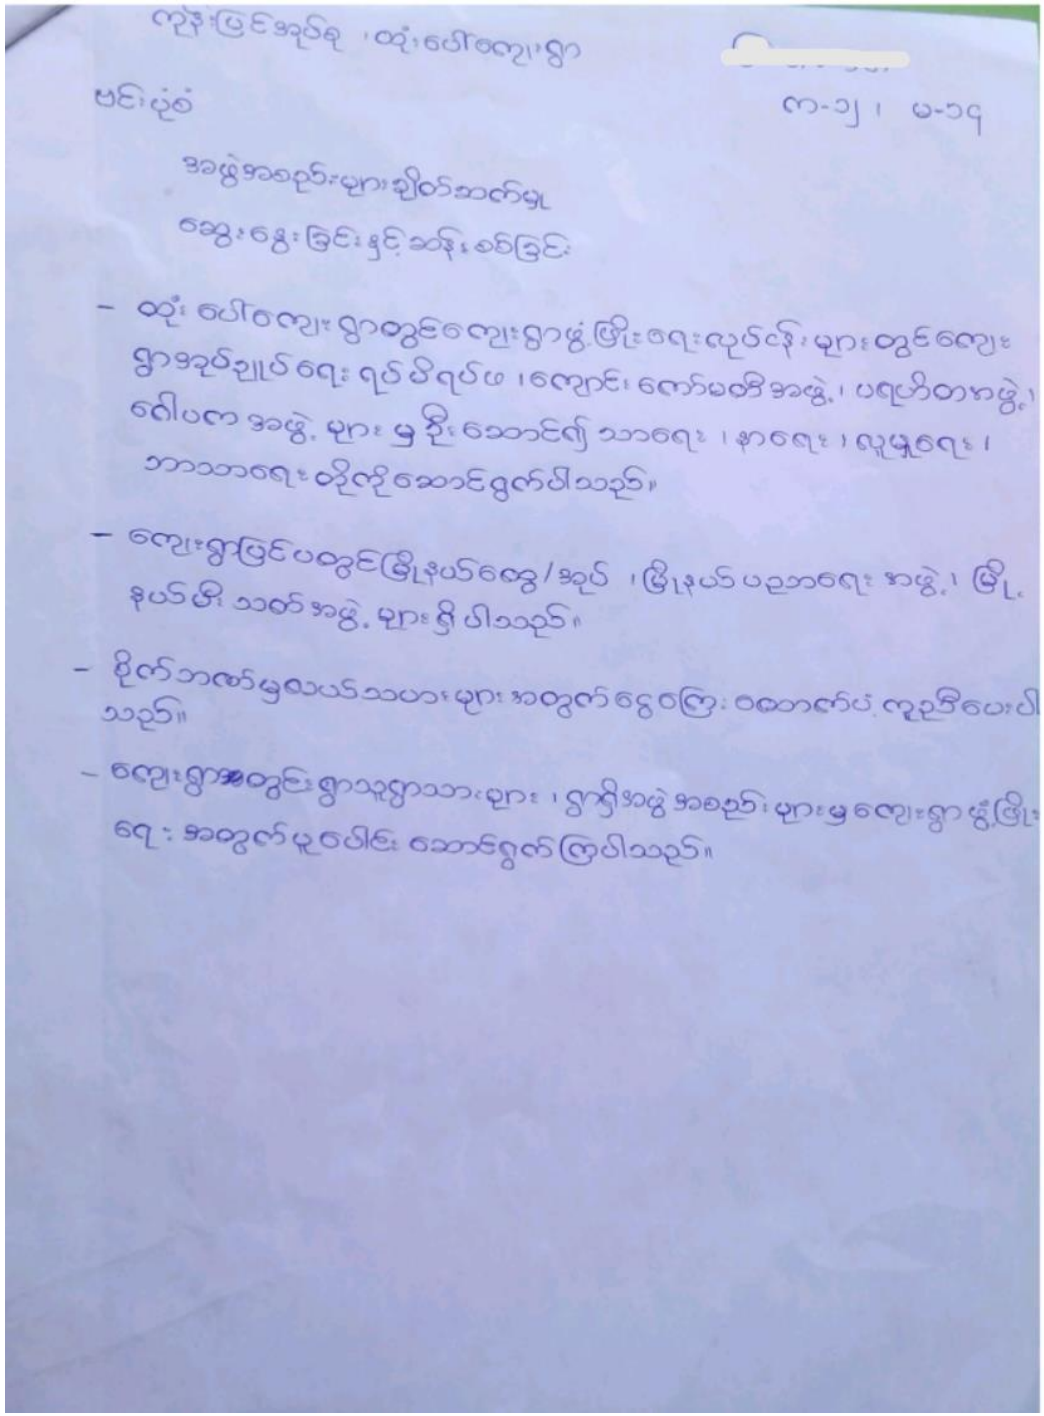 ကုန်းမြင်အုပ်စု ၊ ထုံးပေါ်ကျေးရွာ
ဗင်းပုံစံ
ကျ-၁၂ ၊ မ-၁၄
အဖွဲ့အစည်းများချိတ်ဆက်မှု
ဆွေးနွေးခြင်းနှင့်ဆန်းစစ်ခြင်း
- ထုံးပေါ်ကျေးရွာတွင်ကျေးရွာဖွံ့ဖြိုးရေးလုပ်ငန်းများတွင်ကျေး
ရွာအုပ်ချုပ်ရေး ရပ်မိရပ်ဖ ၊ကျောင်းကော်မတီအဖွဲ့၊ ပရဟိတအဖွဲ့၊
ဂေါပကအဖွဲ့များမှဦးဆောင်၍ သာရေး ၊ နာရေး ၊ လူမှုရေး ၊
ဘာသာရေးတို့ကိုဆောင်ရွက်ပါသည်။
- ကျေးရွာပြင်ပတွင်မြို့နယ်ထွေ/အုပ် ၊ မြို့နယ်ပညာရေးအဖွဲ့၊ မြို့
နယ်မီးသတ်အဖွဲ့များရှိပါသည်။
- စိုက်ဘဏ်မှလယ်သမားများအတွက်ငွေကြေးထောက်ပံ့ကူညီပေးပါ
သည်။
- ကျေးရွာအတွင်းရွာသူရွာသားများ ၊ ရွာရှိအဖွဲ့အစည်းများမှကျေးရွာဖွံ့ဖြိုး
ရေးအတွက်ပူးပေါင်းဆောင်ရွက်ကြပါသည်။